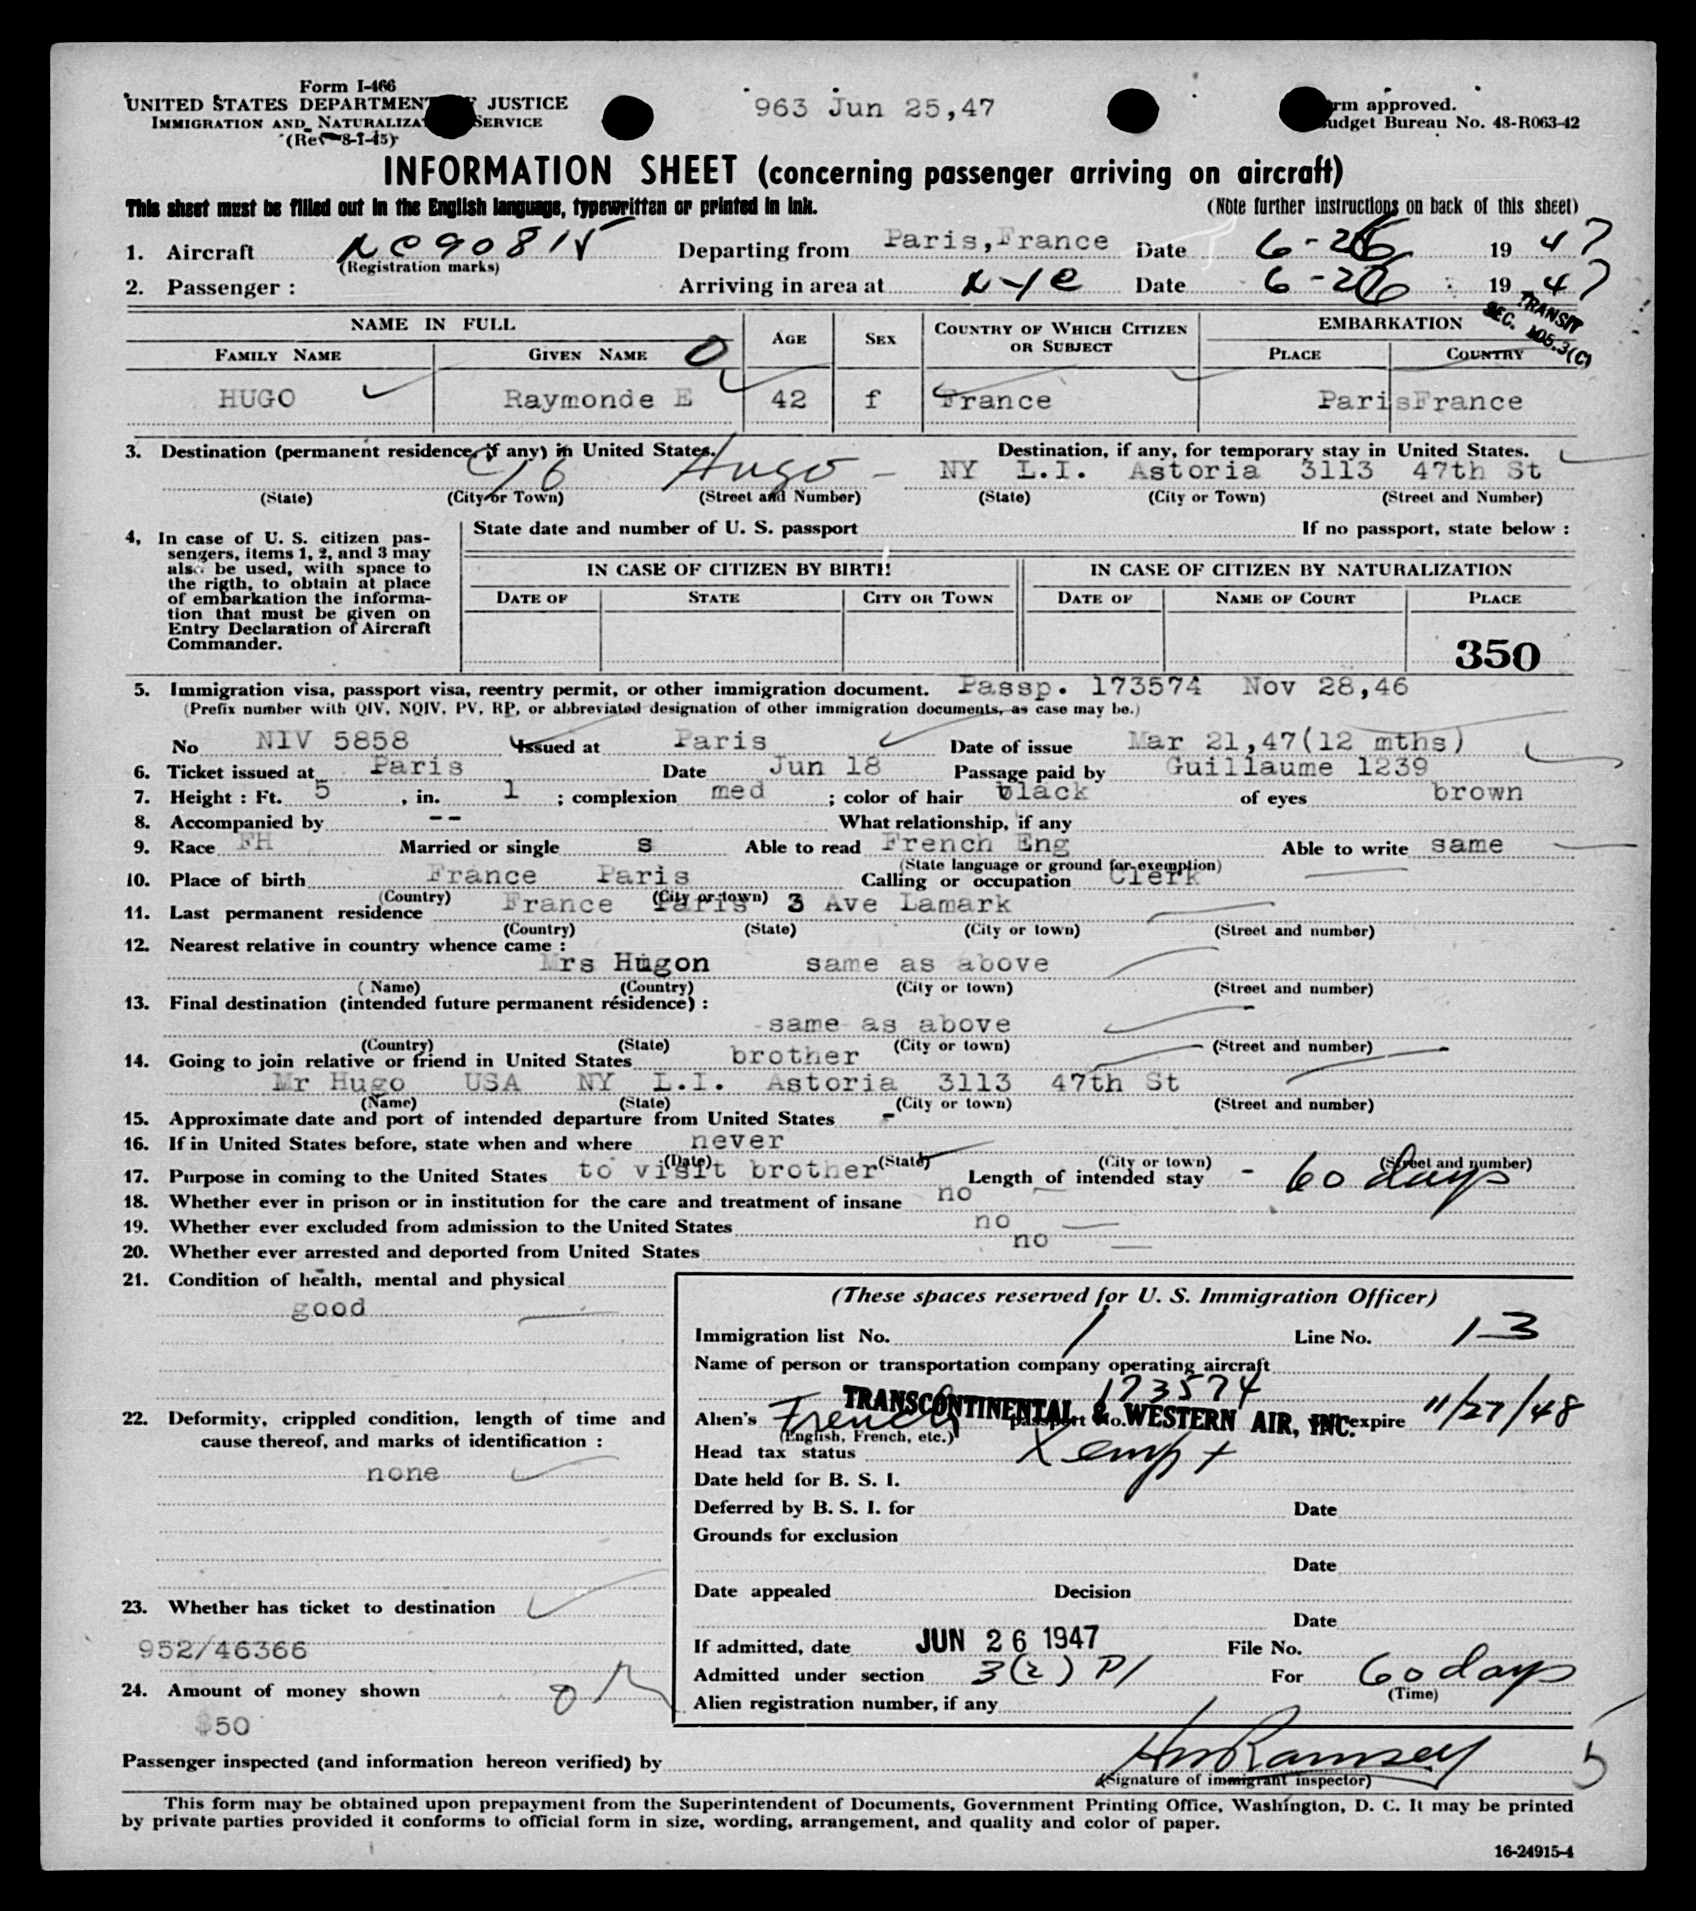 Form I-466
UNITED STATES DEPARTMENT JUSTICE
IMMIGRATION AND NATURALIZA SERVICE
(Rev 8-1-45)
963 Jun 25,47
rm approved.
udget Bureau No. 48-R063-42
INFORMATION SHEET (concerning passenger arriving on aircraft)
This sheet must be filled out in the English language, typewritten or printed in ink.
(Note further instructions on back of this sheet)
1. Aircraft Departing from Paris,France Date 6-26 19 47
(Registration marks)
2. Passenger : Arriving in area at Date 6-26 19 47
TRANSIT
SEC. 105.3(C)
NAME IN FULL AGE SEX COUNTRY OF WHICH CITIZEN OR SUBJECT EMBARKATION
FAMILY NAME GIVEN NAME PLACE COUNTRY
HUGO Raymonde E 42 f France Paris France
3. Destination (permanent residence, if any) in United States. Destination, if any, for temporary stay in United States.
c/o Hugo - NY L.I. Astoria 3113 47th St
(State) (City or Town) (Street and Number) (State) (City or Town) (Street and Number)
4, In case of U. S. citizen passengers, items 1, 2, and 3 may also be used, with space to the rigth, to obtain at place of embarkation the information that must be given on Entry Declaration of Aircraft Commander.
State date and number of U. S. passport If no passport, state below :
IN CASE OF CITIZEN BY BIRTH IN CASE OF CITIZEN BY NATURALIZATION
DATE OF STATE CITY OR TOWN DATE OF NAME OF COURT PLACE
350
5. Immigration visa, passport visa, reentry permit, or other immigration document. Passp. 173574 Nov 28,46
(Prefix number with QIV, NQIV, PV, RP, or abbreviated designation of other immigration documents, as case may be.)
No NIV 5858 Issued at Paris Date of issue Mar 21,47(12 mths)
6. Ticket issued at Paris Date Jun 18 Passage paid by Guillaume 1239
7. Height : Ft. 5 , in. 1 ; complexion med ; color of hair black of eyes brown
8. Accompanied by -- What relationship, if any
9. Race FH Married or single s Able to read French Eng Able to write same
(State language or ground for exemption)
10. Place of birth France Paris Calling or occupation Clerk
(Country) (City or town)
11. Last permanent residence France Paris 3 Ave Lamark
(Country) (State) (City or town) (Street and number)
12. Nearest relative in country whence came :
Mrs Hugon same as above
(Name) (Country) (City or town) (Street and number)
13. Final destination (intended future permanent résidence) :
same as above
(Country) (State) (City or town) (Street and number)
14. Going to join relative or friend in United States brother
Mr Hugo USA NY L.I. Astoria 3113 47th St
(Name) (State) (City or town) (Street and number)
15. Approximate date and port of intended departure from United States -
16. If in United States before, state when and where never
(Date) (State) (City or town) (Street and number)
17. Purpose in coming to the United States to visit brother Length of intended stay - 60 days
18. Whether ever in prison or in institution for the care and treatment of insane no
19. Whether ever excluded from admission to the United States no
20. Whether ever arrested and deported from United States no
21. Condition of health, mental and physical
good
22. Deformity, crippled condition, length of time and cause thereof, and marks of identification :
none
23. Whether has ticket to destination
952/46366
24. Amount of money shown
$50
(These spaces reserved for U. S. Immigration Officer)
Immigration list No. 1 Line No. 13
Name of person or transportation company operating aircraft
TRANSCONTINENTAL & WESTERN AIR, INC.
173574
Alien's French passport No. expire 11/27/48
(English, French, etc.)
Head tax status Xempt
Date held for B. S. I.
Deferred by B. S. I. for Date
Grounds for exclusion
Date
Date appealed Decision
Date
If admitted, date JUN 26 1947 File No.
Admitted under section 3(2) P1 For 60 days
(Time)
Alien registration number, if any
Passenger inspected (and information hereon verified) by Ramsey
(Signature of immigrant inspector)
5
This form may be obtained upon prepayment from the Superintendent of Documents, Government Printing Office, Washington, D. C. It may be printed
by private parties provided it conforms to official form in size, wording, arrangement, and quality and color of paper.
16-24915-4